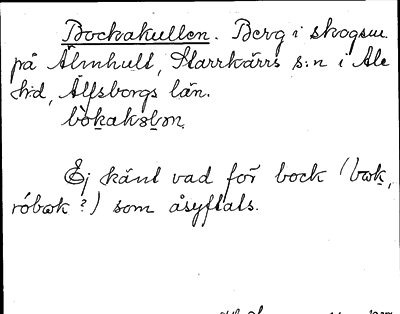 Bockakullen. Berg i skogsm.
på Älmhult, Starrkärrs s:n i Ale
h:d, Älfsborgs län.
Ej känt vad för bock (bɷk,
róbɷk?) som åsyftats.